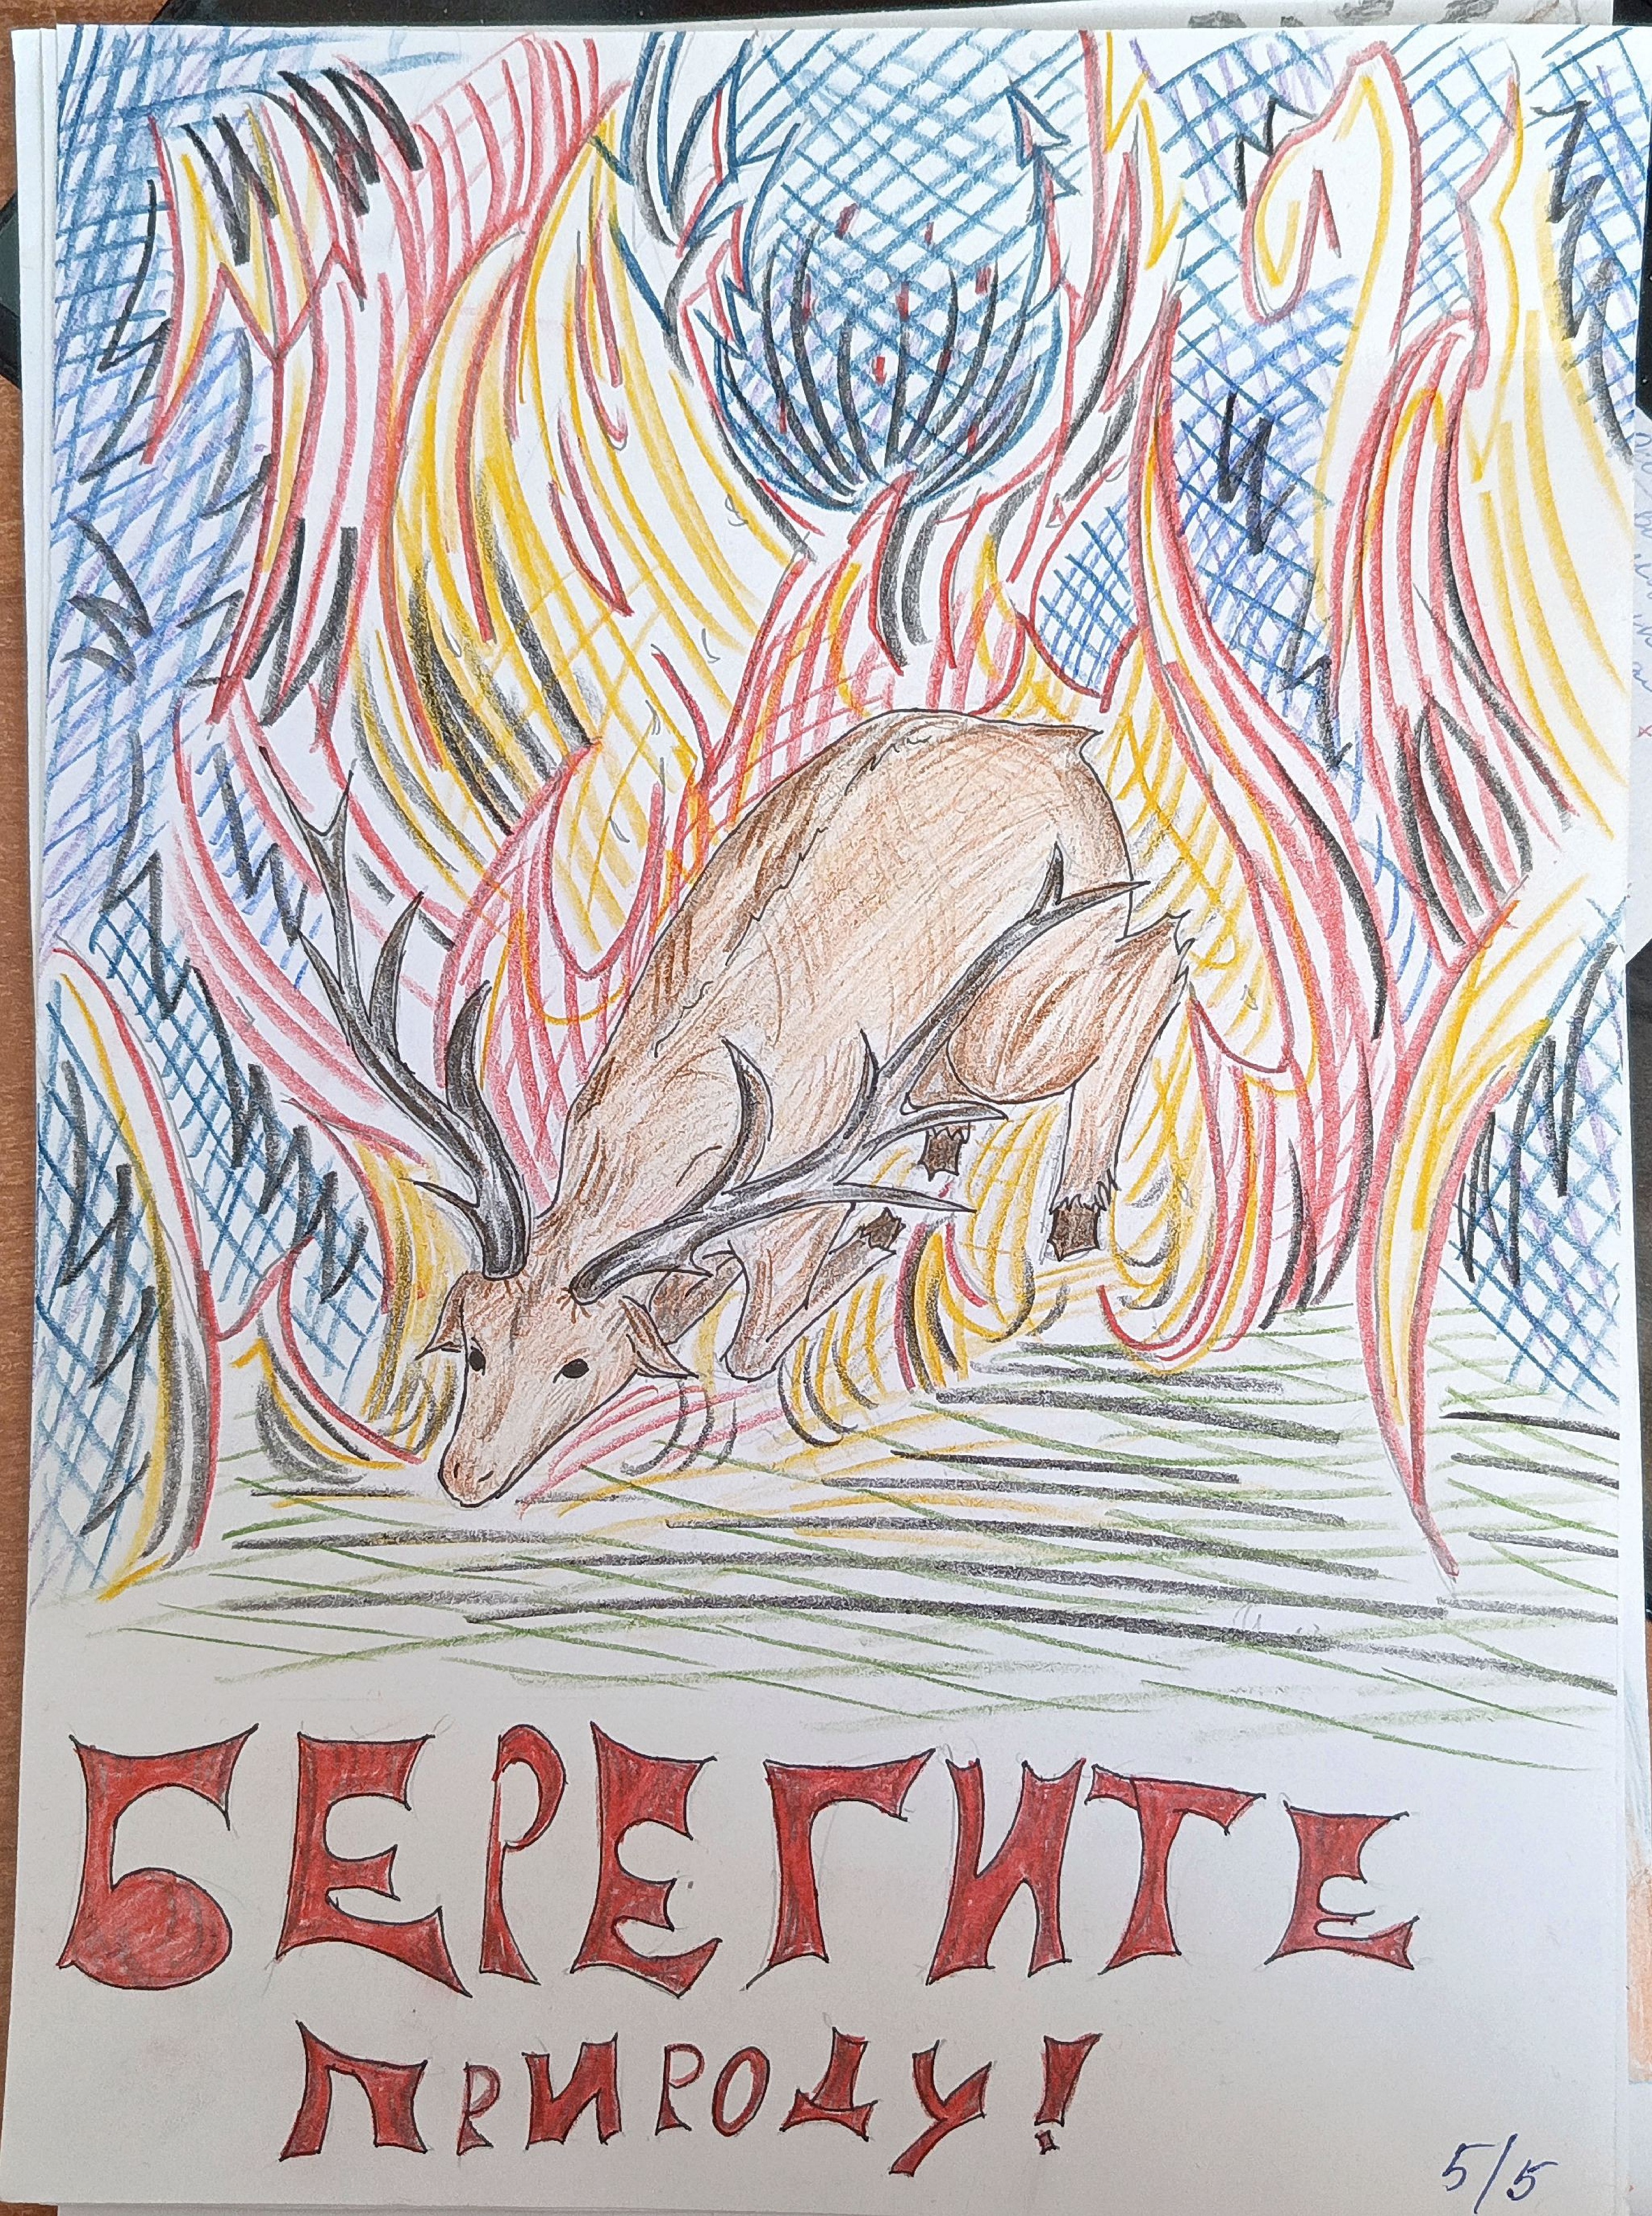 БЕРЕГИТЕ
ПРИРОДУ!
5/5